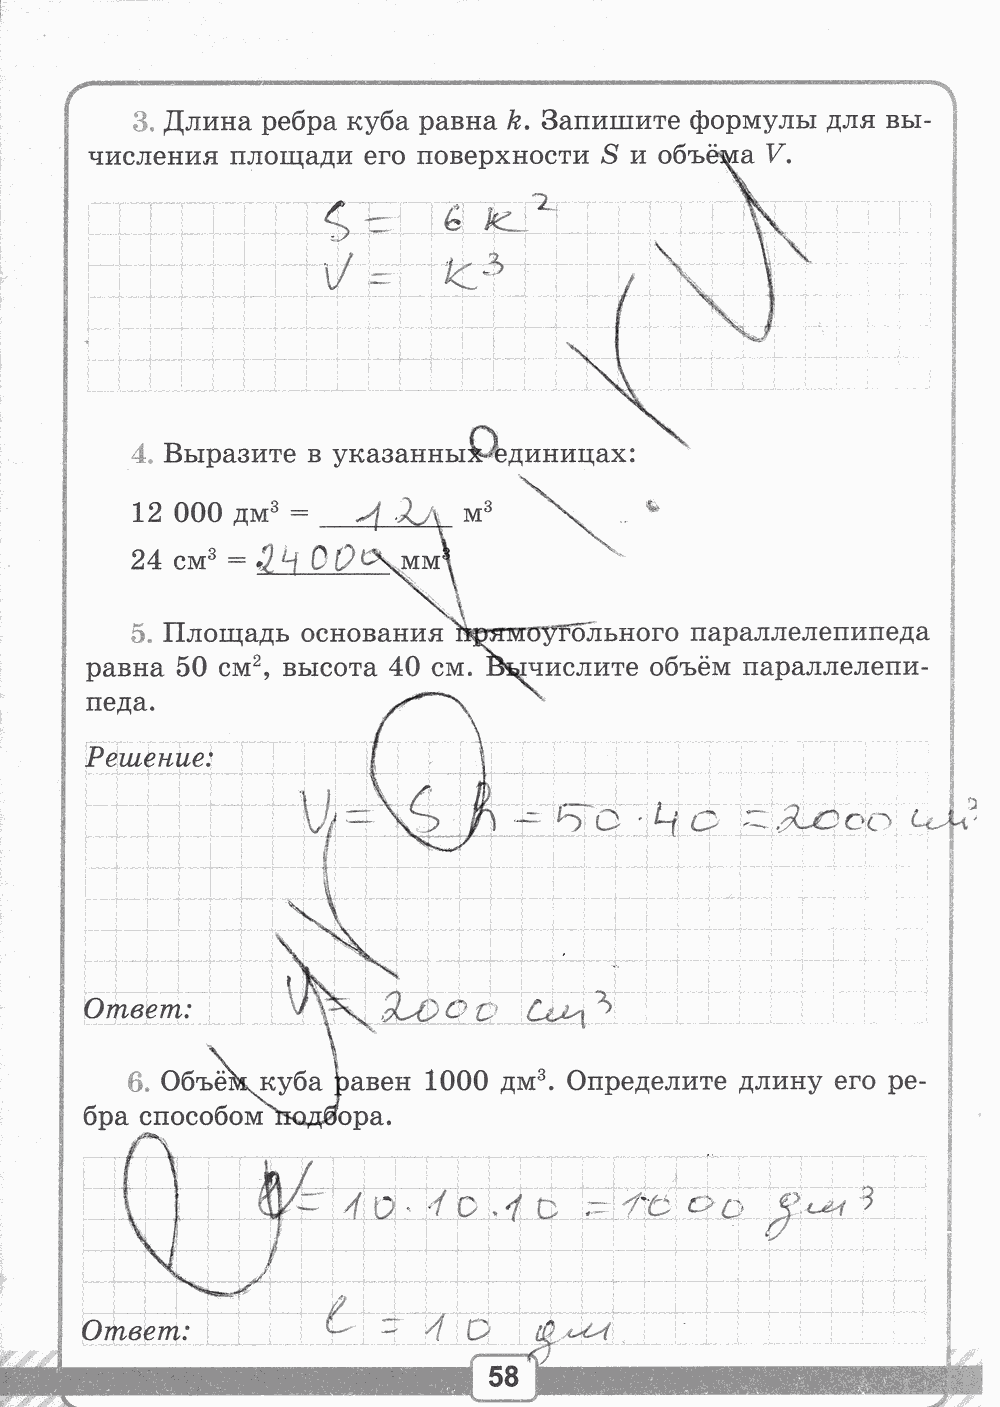 3. Длина ребра куба равна k. Запишите формулы для вы-
числения площади его поверхности S и объёма V.
S = 6 к²
V = к³
4. Выразите в указанных единицах:
12 000 дм³ = 12 м³
24 см³ = 24000 мм³
5. Площадь основания прямоугольного параллелепипеда
равна 50 см², высота 40 см. Вычислите объём параллелепи-
педа.
Решение:
V = S h = 50 · 40 = 2000 см³
Ответ: V = 2000 см³
6. Объём куба равен 1000 дм³. Определите длину его ре-
бра способом подбора.
V = 10 · 10 · 10 = 1000 дм³
Ответ: l = 10 дм
58